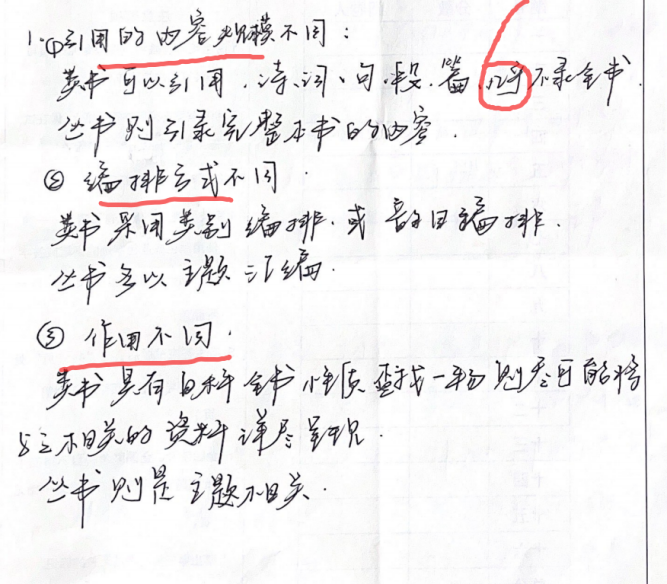 1.①引用的内容规模不同:
类书可以引用,诗、词、句、段、篇、几乎不录全书.
丛书则引录完整本书的内容.
② 编排方式不同.
类书采用类别编排.或音目编排.
丛书多以主题汇编.
③ 作用不同.
类书具有百科全书性质查找一物则尽可能将
与之相关的资料详尽呈现.
丛书则是主题相关.